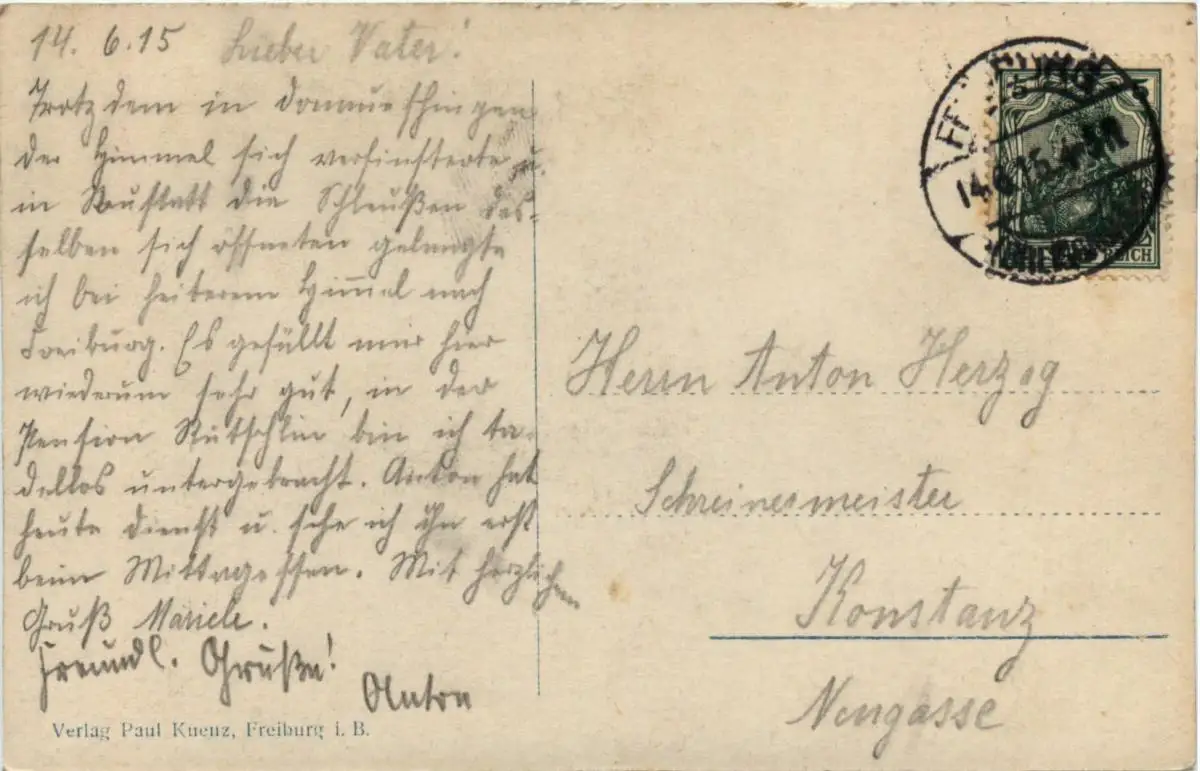 14. 6. 15 Lieber Vater!
Trotzdem in Donaueschingen
der Himmel sich verfinsterte u.
in Neustatt die Schleußen des-
selben sich öffneten gelangte
ich bei heiterem Him̅el nach
Freiburg. Es gefällt mir hier
wiederum sehr gut, in der
Pension bin ich ta-
dellos untergebracht. Anton hat
heute Dienst u. sehe ich ihn erst
beim Mittagessen. Mit herzlichem
Gruß Mariele.
Freundl. Grüße!
Anton
Verlag Paul Kuenz, Freiburg i. B.
5 5
14.6.15
REICH
Herrn Anton Herzog
Schreinermeister
Konstanz
Neugasse